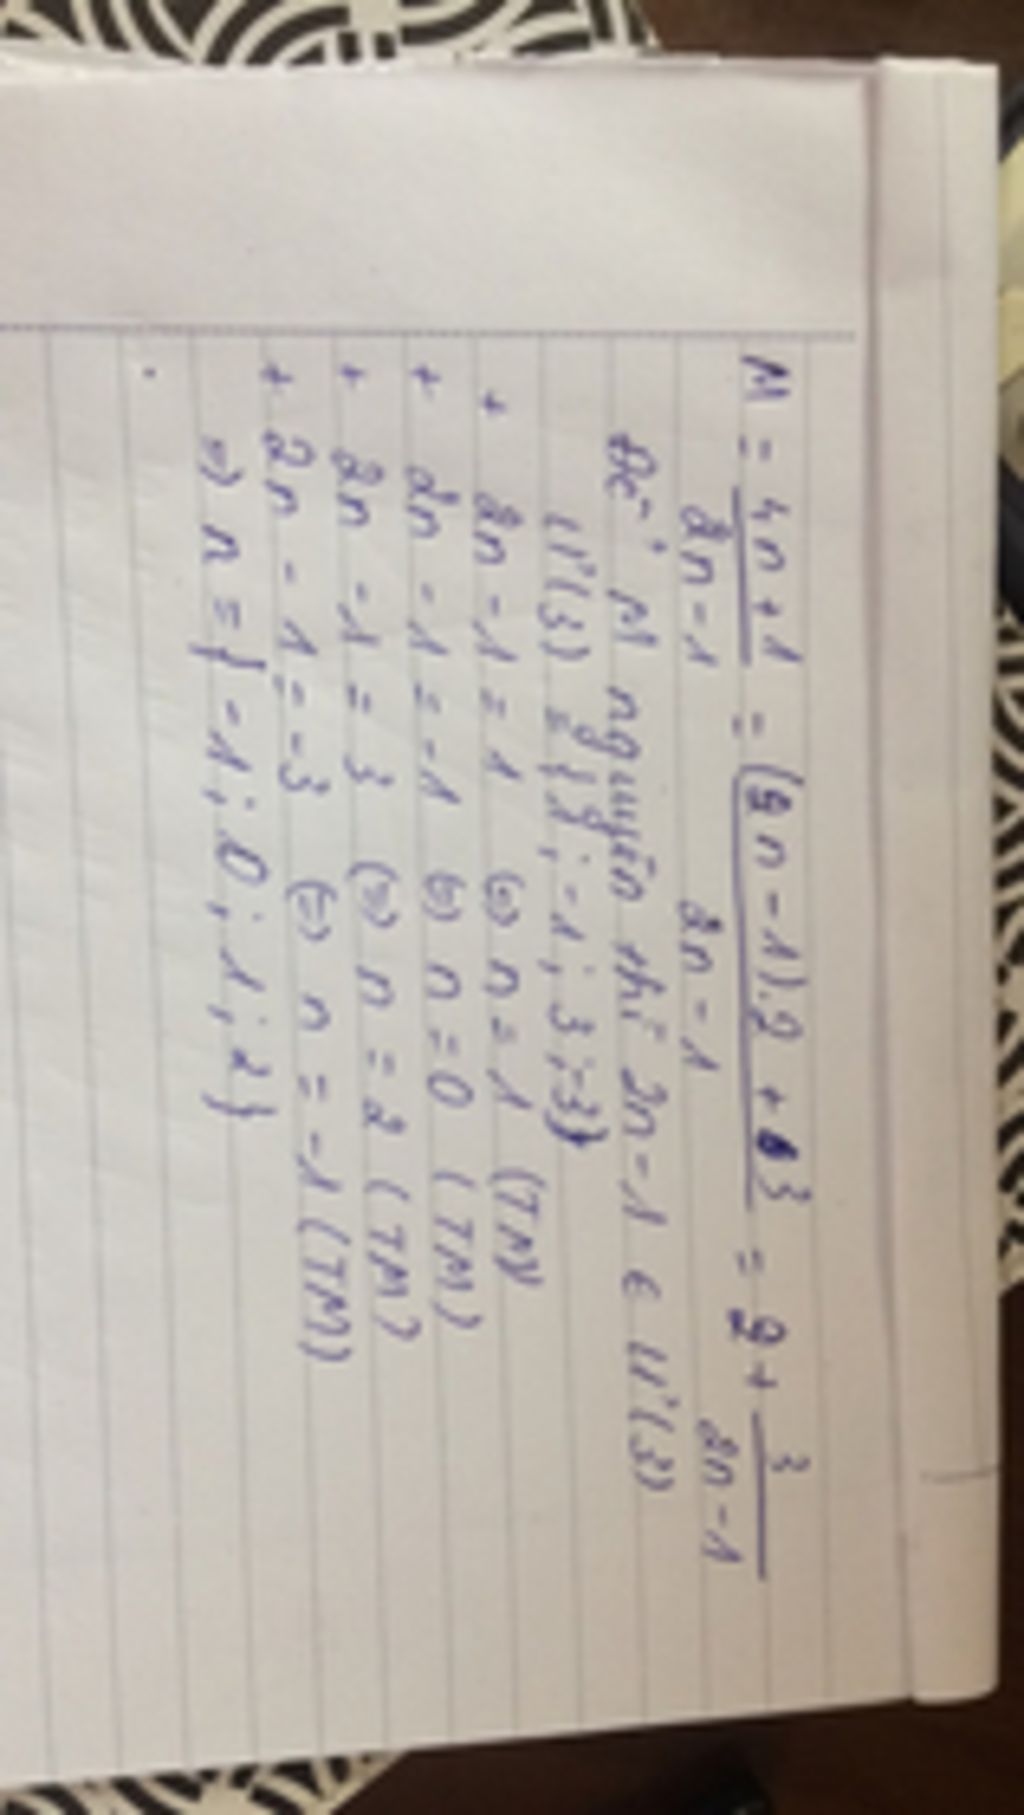 M = 4n + 1 / 2n - 1 = (2n - 1).2 + 3 / 2n - 1 = 2 + 3 / 2n - 1
Để M nguyên thì 2n - 1 ∈ Ư(3)
Ư(3) = {1; -1; 3; -3}
+ 2n - 1 = 1 (=) n = 1 (TM)
+ 2n - 1 = -1 (=) n = 0 (TM)
+ 2n - 1 = 3 (=) n = 2 (TM)
+ 2n - 1 = -3 (=) n = -1 (TM)
=) n = { -1; 0; 1; 2}